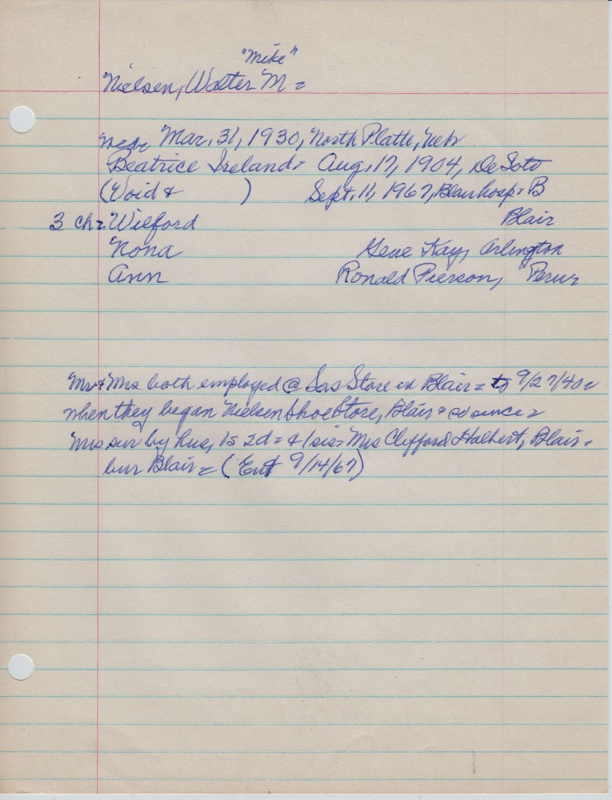 "Mike"
Nielsen, Walter M =
Mar. 31, 1930, North Platte, Neb
Beatrice Ireland = Aug. 17, 1904, De Soto
(Void & ) Sept. 11, 1967, Blair hosp = B
3 ch = Wilford Blair
Nona Gene Kay, Arlington
Ann Ronald Pierson, Peru
Mr & Mrs both employed @ Sas Store in Blair = to 9/27/40 =
when they began Nielsen Shoe Store, Blair = co since =
Mrs sur by hus, 1s 2d = & 1 sis = Mrs Clifford Halbert, Blair =
bur Blair = (Ent 9/14/67)